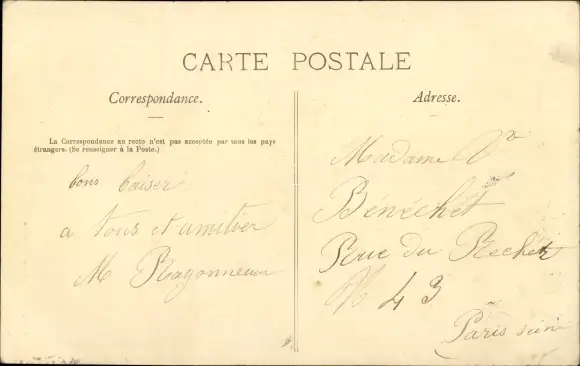 CARTE POSTALE
Correspondance.
La Correspondance au recto n'est pas acceptée par tous les pays
étrangers. (Se renseigner à la Poste.)
bons baiser
a tous et amitier
M Ragonneau
Adresse.
Madame Ve
Bénéchet
Rue du Rocher
No 43
Paris seine